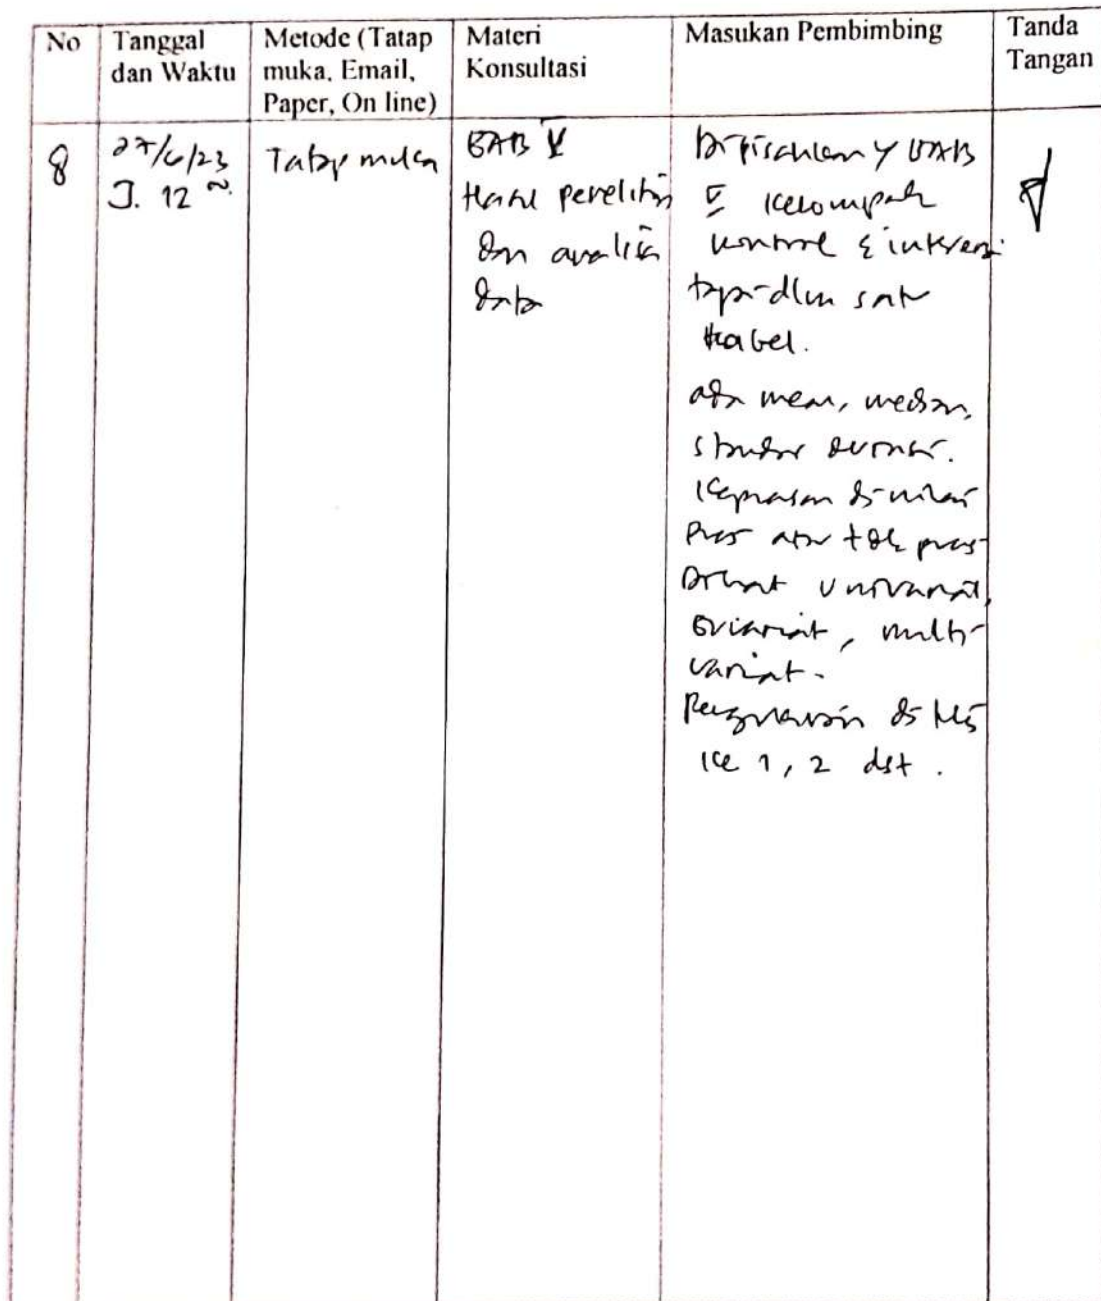 No
Tanggal
dan Waktu
Metode (Tatap
muka, Email,
Paper, On line)
Materi
Konsultasi
Masukan Pembimbing
Tanda
Tangan
8
27/6/23
J. 12
Tatap muka
BAB V
Hasil penelitian
dan analisis
data
Dipisahkan y BAB
V kelompok
kontrol & intervensi
tapi dlm satu
tabel.
ada mean, median,
standar deviasi.
di nilai
puas atau tdk puas
univariat,
bivariat, multi-
variat.
ke 1, 2 dst.